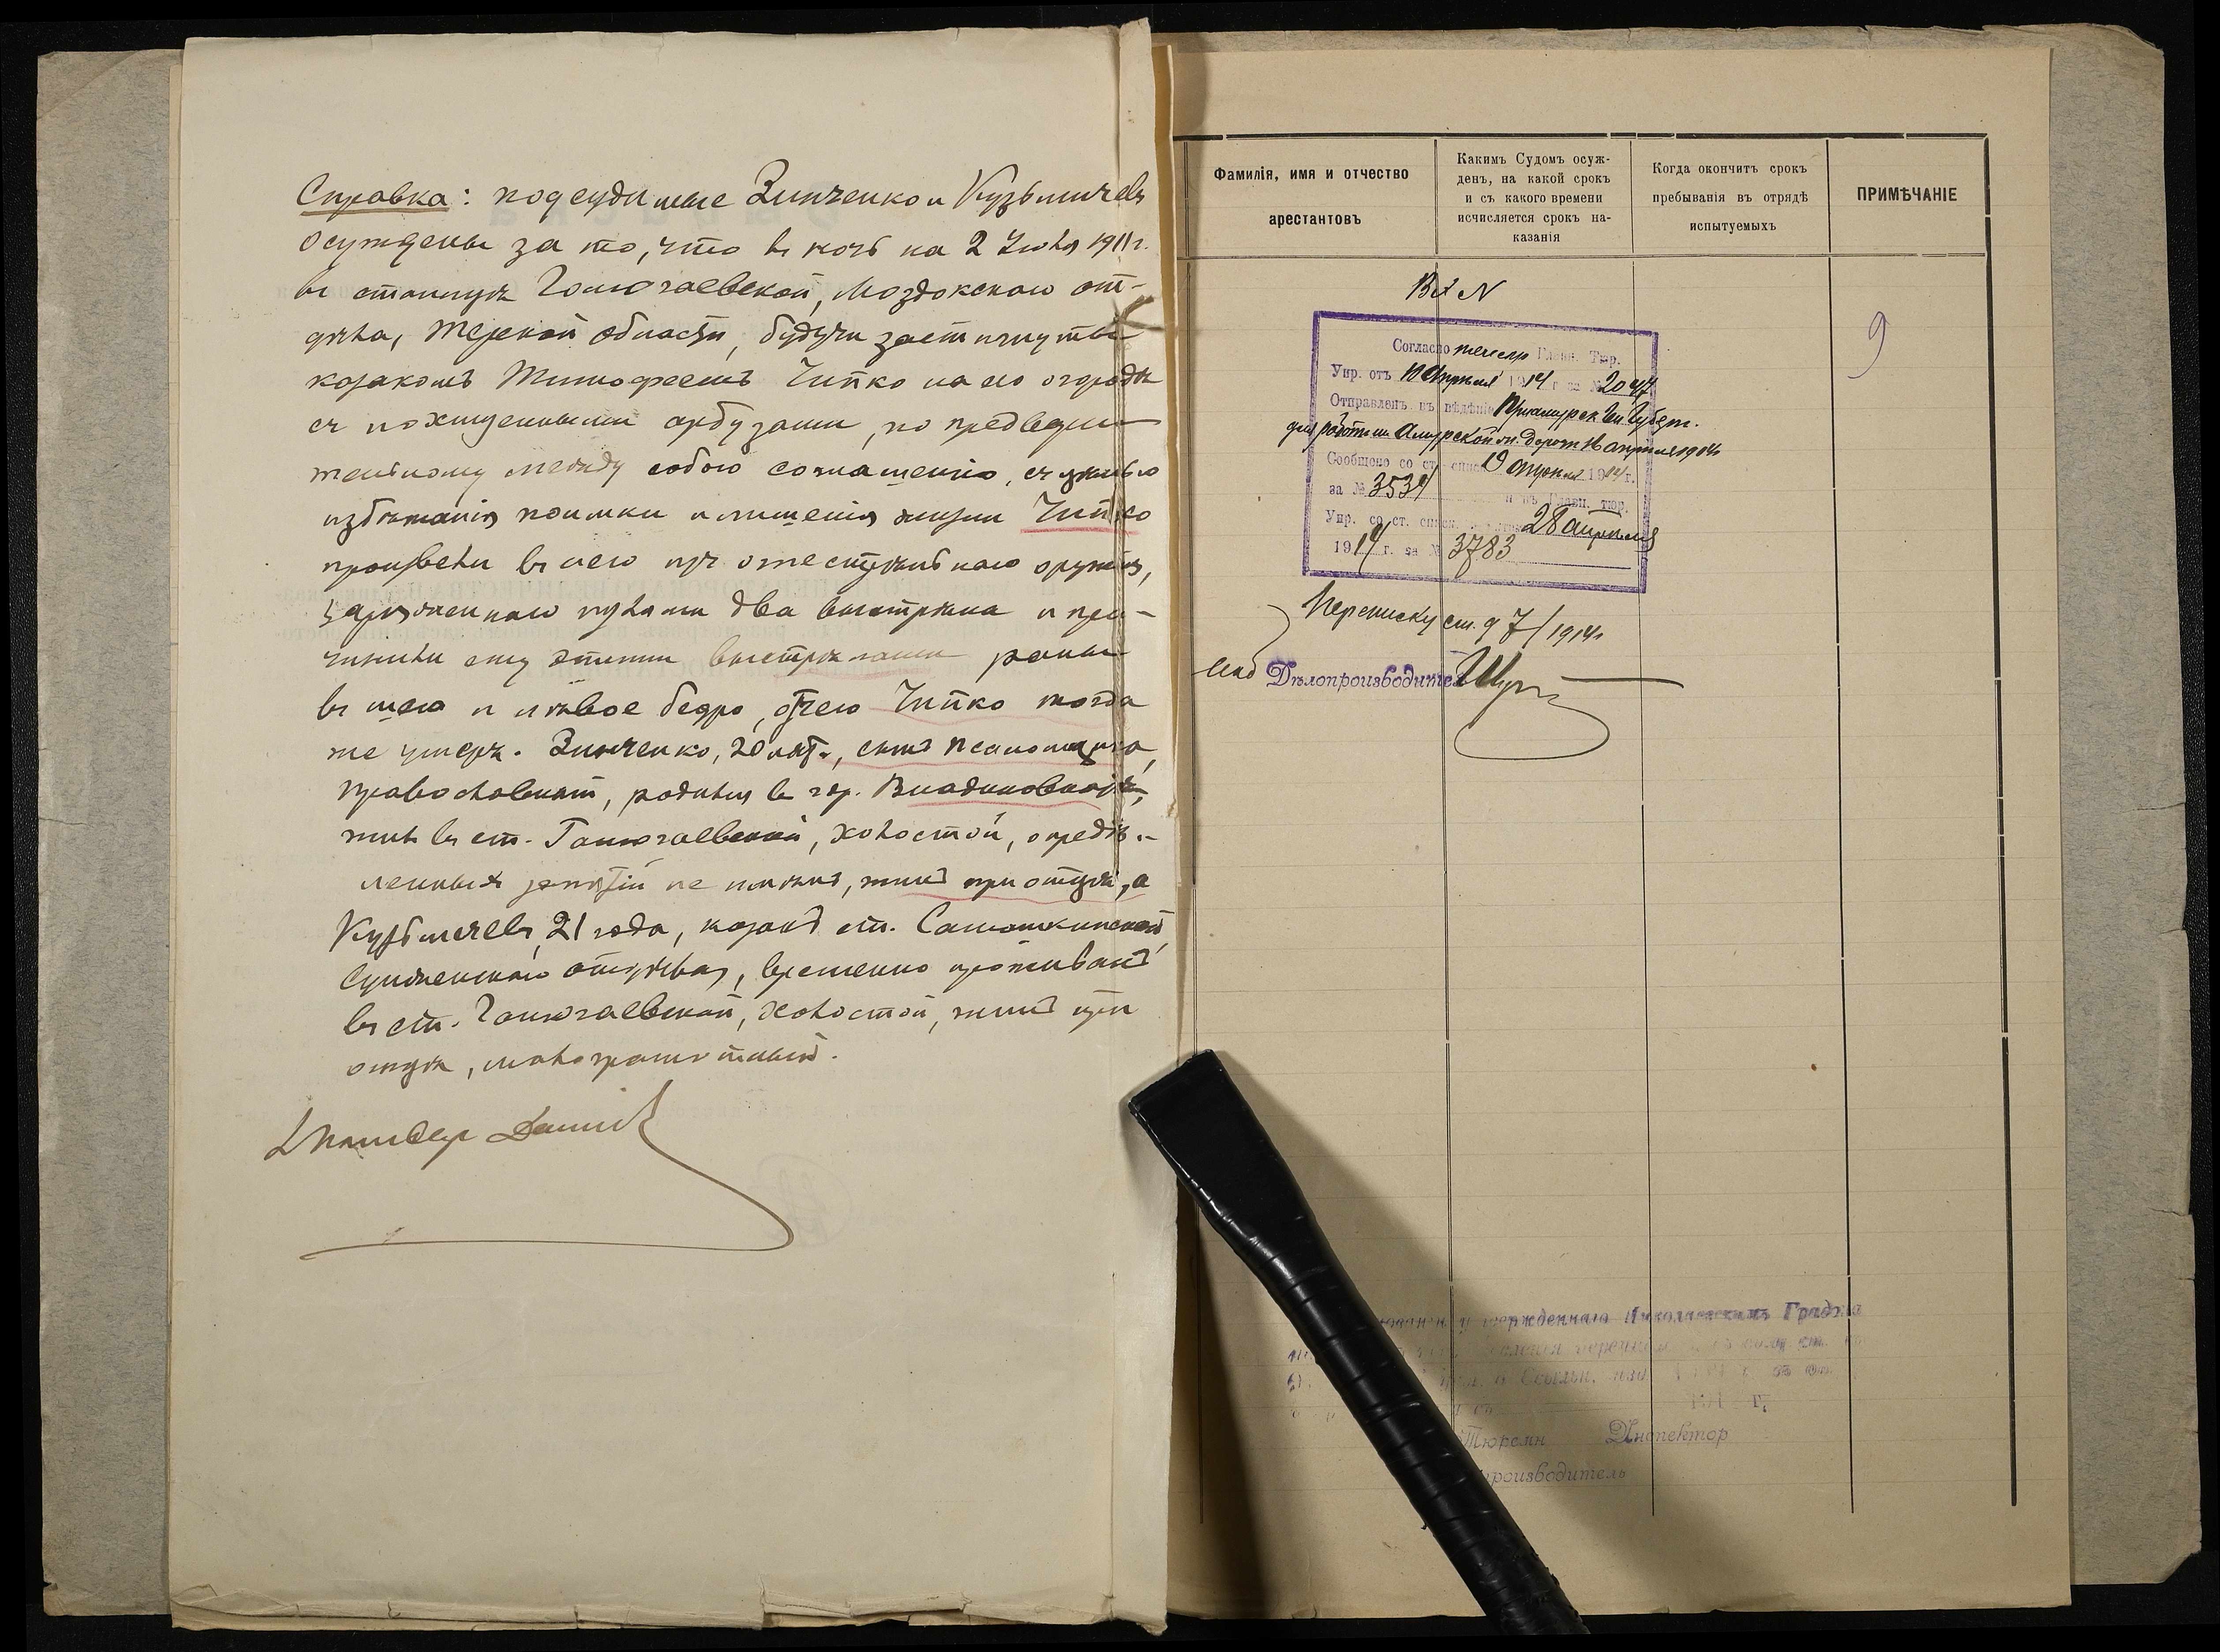 Справка: подсудимые Зинченко и Кузьмичевъ
осуждены за то, что въ ночь на 2 Іюля 1911 г.
въ станицѣ Галюгаевской, Моздокскаго от-
дѣла, Терской области, будучи застигнуты
казакомъ Тимофеемъ Чипко на его огородѣ
съ похищенными арбузами, по предвари-
тельному между собою соглашенію, съ цѣлью
избѣжанія поимки и лишенія жизни Чипко
произвели въ него изъ огнестрѣльнаго оружія,
заряженнаго пулями два выстрѣла и при-
чинили ему этими выстрѣлами раны
въ шею и лѣвое бедро, отчего Чипко тогда
же умеръ. Зинченко, 20 лѣтъ, сынъ псаломщика,
православный, родился въ гор. Владикавказѣ,
жилъ въ ст. Галюгаевской, холостой, опредѣ-
ленныхъ занятій не имѣлъ, жилъ при отцѣ, а
Кузьмичевъ, 21 года, казакъ ст. Самашкинской,
Сунженскаго отдѣла, временно проживалъ
въ ст. Галюгаевской, холостой, жилъ при
отцѣ, малограмотный.
Фамилія, имя и отчество
арестантовъ
Какимъ Судомъ осуж-
денъ, на какой срокъ
и съ какого времени
исчисляется срокъ на-
казанія
Когда окончитъ срокъ
пребыванія въ отрядѣ
испытуемыхъ
ПРИМѢЧАНІЕ
9
Согласно телегр Главн. Тюр.
Упр. отъ 10 Апрѣля 1914 г за № 2047
Отправленъ въ вѣдѣніе Приамурск Ген Губерн.
для работъ на Амурской ж. дорогѣ 16 апрѣля 1914
Сообщено со ст спис 19 апрѣля 1914 г.
за № 3534 и въ Главн. тюр.
Упр. со ст. списк. 28 апрѣля
1914 г. за № 3783
Переписку см. 97/1914 г
Дѣлопроизводитель
Тюремн Инспектор
производитель